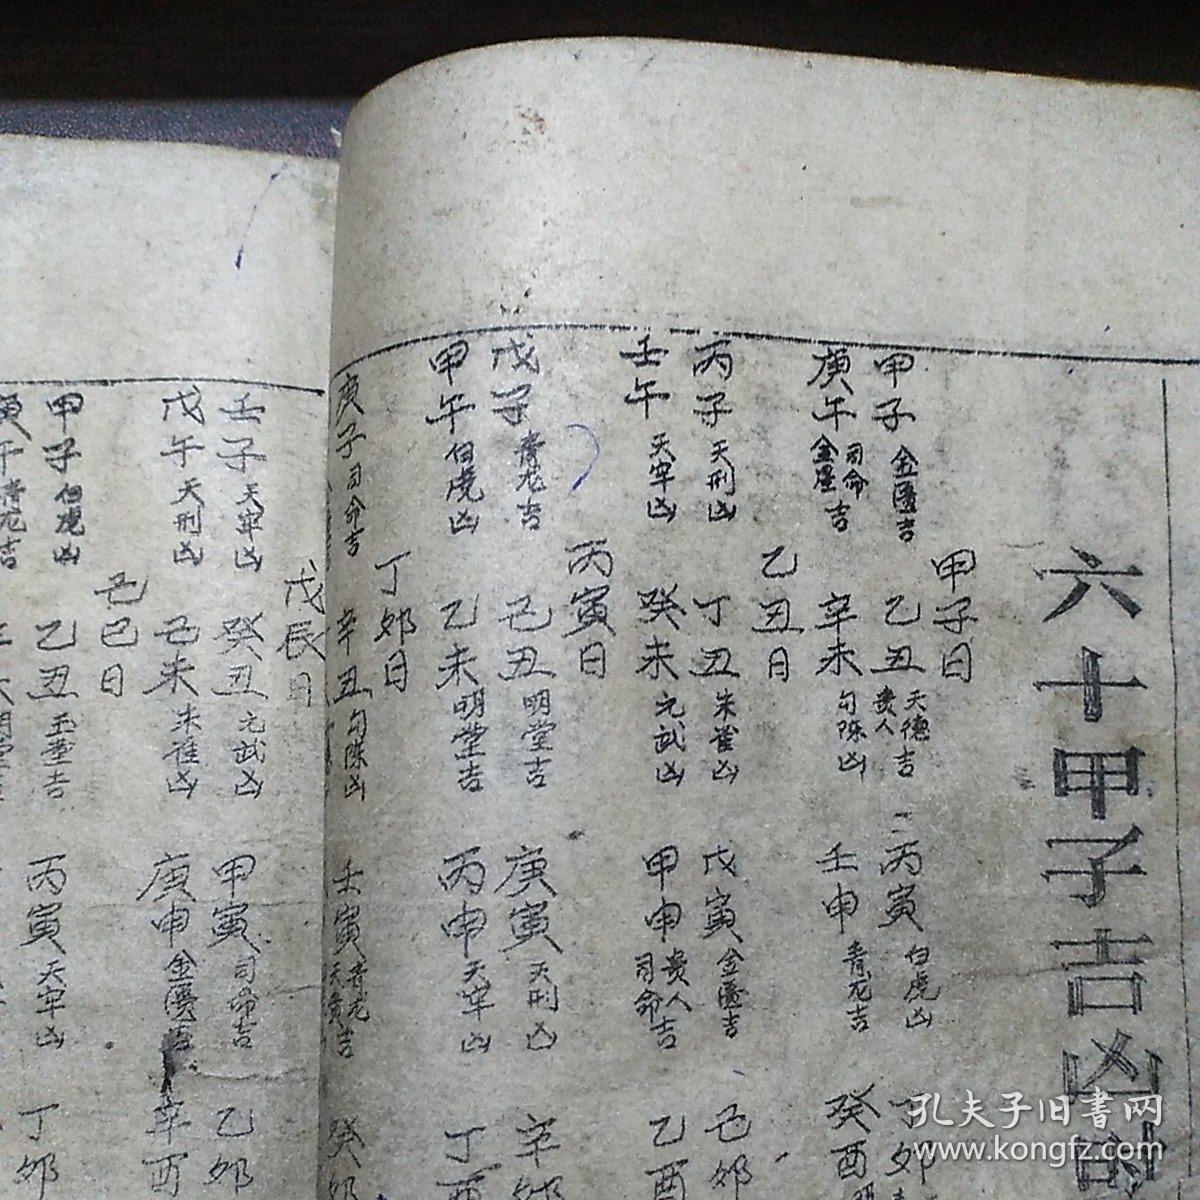 六十甲子吉凶時
甲子日
甲子金匱吉 乙丑天德貴人吉 丙寅白虎凶 丁卯
庚午司命金星吉 辛未勾陈凶 壬申青龙吉 癸酉
乙丑日
丙子天刑凶 丁丑朱雀凶 戊寅金匱吉 己卯
壬午天牢凶 癸未元武凶 甲申貴人司命吉 乙酉
丙寅日
戊子青龙吉 己丑明堂吉 庚寅天刑凶 辛卯
甲午白虎凶 乙未明堂吉 丙申天牢凶 丁酉
丁卯日
庚子司命吉 辛丑勾陈凶 壬寅青龙天貴吉 癸卯
戊辰日
壬子天牢凶 癸丑元武凶 甲寅司命吉 乙卯
戊午天刑凶 己未朱雀凶 庚申金匱吉 辛酉
己巳日
甲子白虎凶 乙丑玉堂吉 丙寅天牢凶 丁卯
庚午青龙吉
孔夫子旧书网
www.kongfz.com